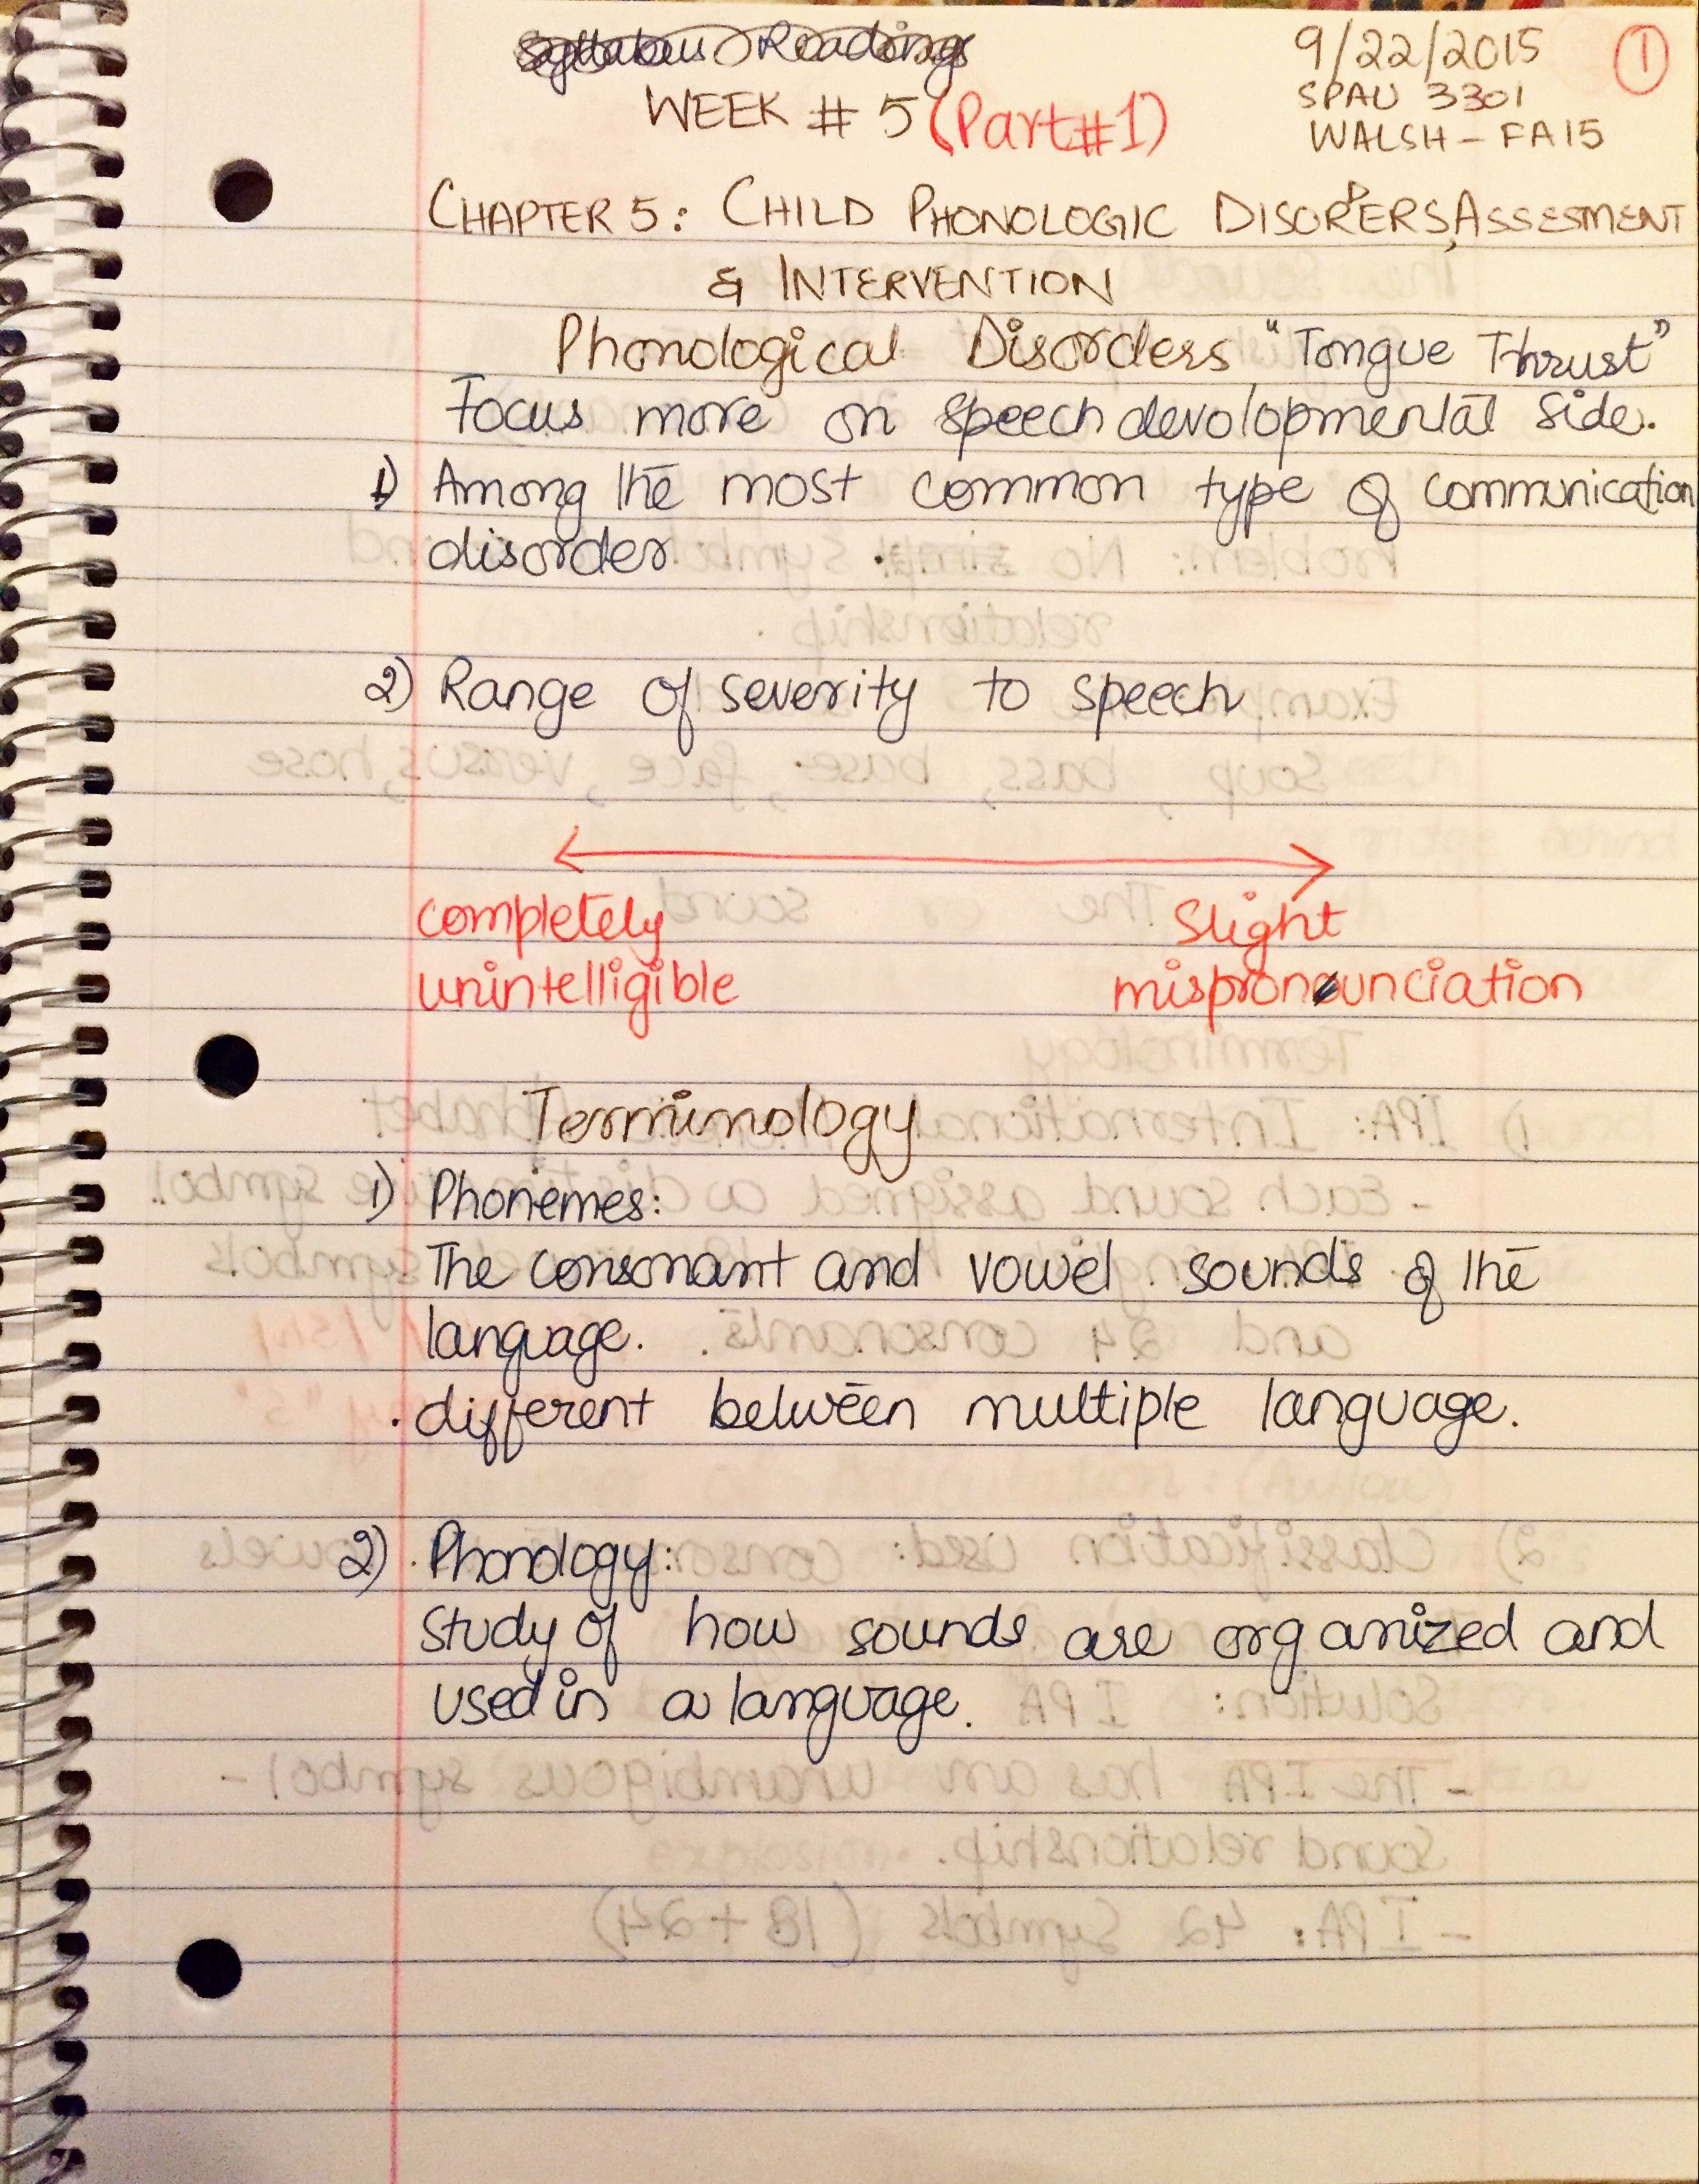 Syllabus Readings
9/22/2015
1
WEEK # 5 (Part#1)
SPAU 3301
WALSH - FA15
CHAPTER 5: CHILD PHONOLOGIC DISORDERS, ASSESMENT
& INTERVENTION
Phonological Disorders "Tongue Thrust"
Focus more on speech devolopmental side.
1) Among the most common type of communication
disorder
2) Range of severity to speech
completely
unintelligible
Slight
mispronounciation
Terminology
1) Phonemes:
The consonant and vowel sounds of the
language.
. different between multiple language.
2) Phonology:
study of how sounds are organized and
used in a language.